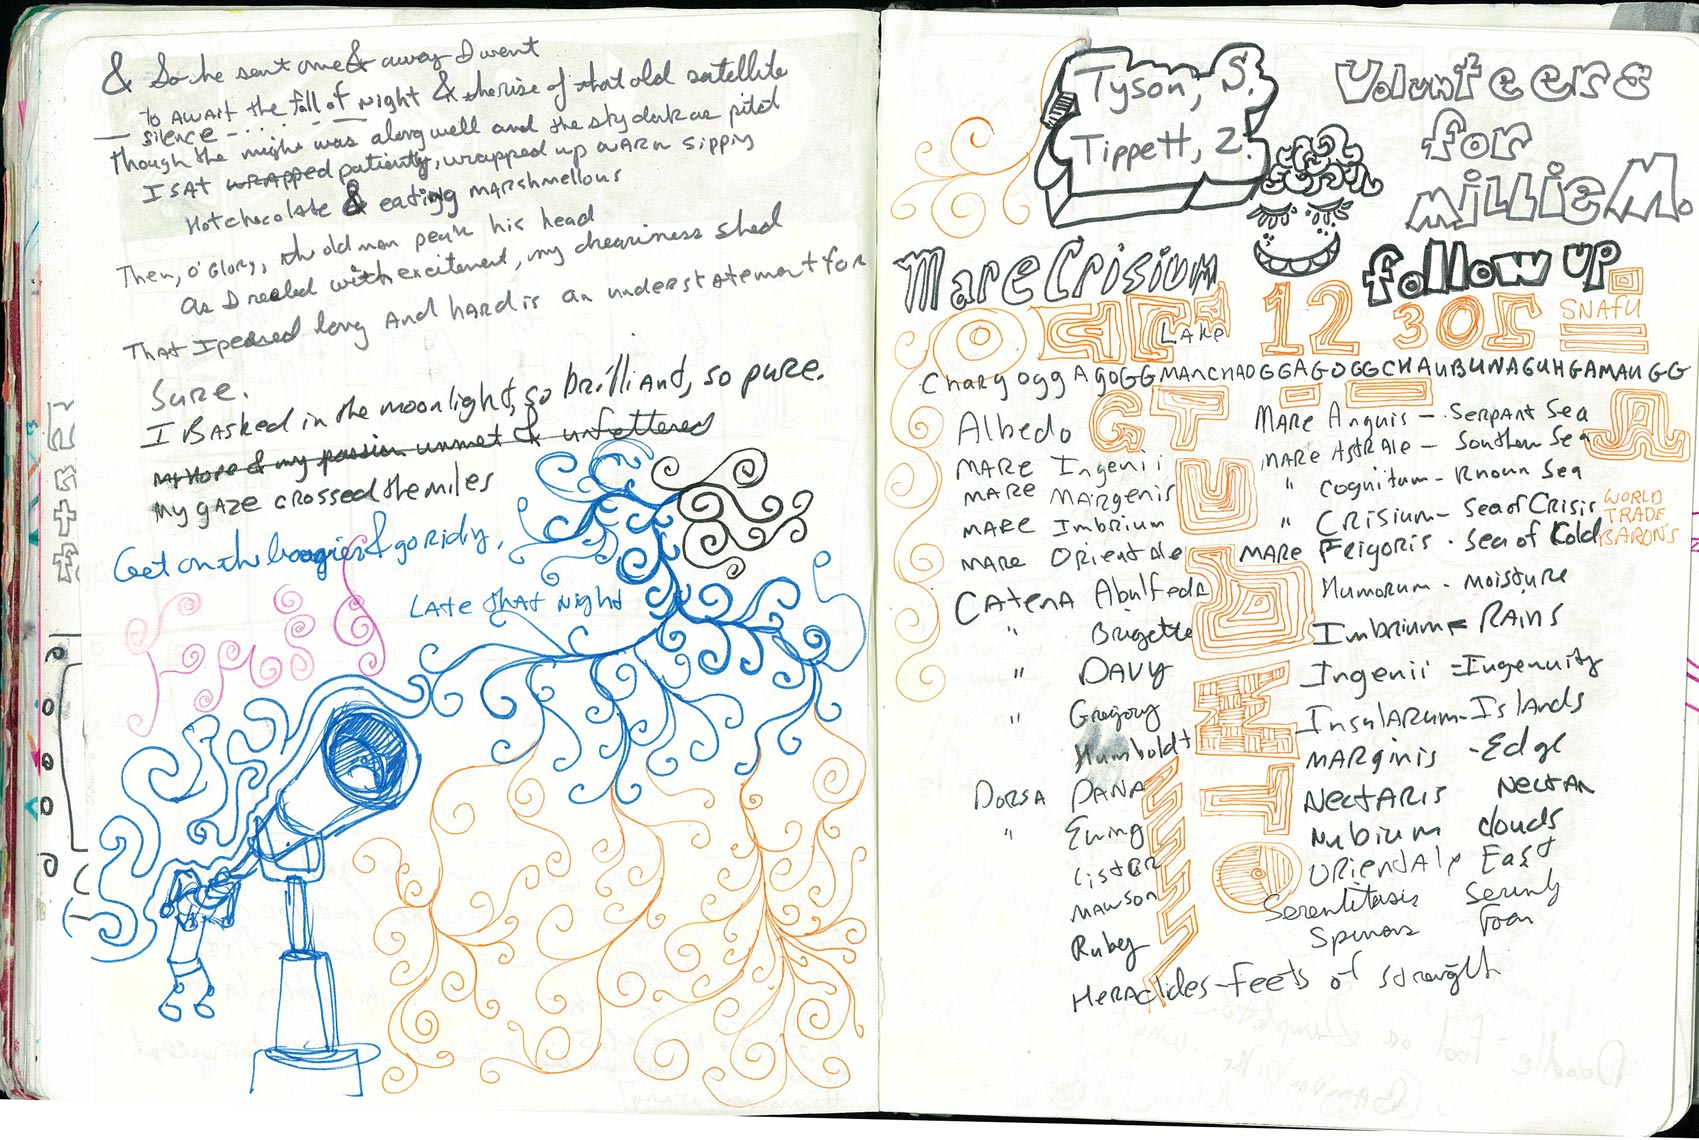 & So he sent me & away I went
to await the fall of night & the rise of that old satellite
— silence - . . . . . .
though the night was along well and the sky dark as pitch
I sat wrapped patiently, wrapped up warm sipping
Hot chocolate & eating marshmellous
Then, o' Glory, the old man peak his head
as I reeled with excitement, my cheariness shed
That I peered long And hard is an understatement for
Sure.
I Basked in the moonlight, so brilliant, so pure.
my Hope & my passion unmet & unfettered
My gaze crossed the miles
Get on the boogies & go ridy,
Late that Night
Tyson, S.
Tippett, Z.
Volunteers
for
Millie M.
Mare Crisium
follow up
Lake
12 30
SNAFU
Chargoggagoggmanchaoggagoggchaubunaguhgamaugg
Albedo
Mare Ingenii
Mare Margenis
Mare Imbrium
Mare Orientale
Catena Abulfeda
" Brigette
" Davy
" Gregory
Humboldt
Dorsa Dana
" Ewing
Lister
Mawson
Ruby
Heraclides - feets of strength
Mare Anguis - Serpant Sea
Mare Astrale - Southern Sea
" Cognitum - Known Sea
" Crisium - Sea of Crisis
Mare Frigoris - Sea of Cold
Humorum - Moisture
Imbrium - Rains
Ingenii - Ingenuity
Insularum - Islands
Marginis - Edge
Nectaris Nectar
Nubium clouds
Oriendale East
Serentitasis
Spumans foam
WORLD
TRADE
BARON'S